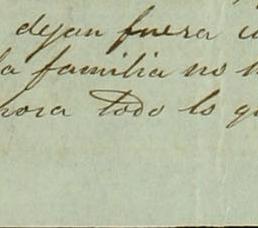 dejan fuera
la familia no
hora todo lo